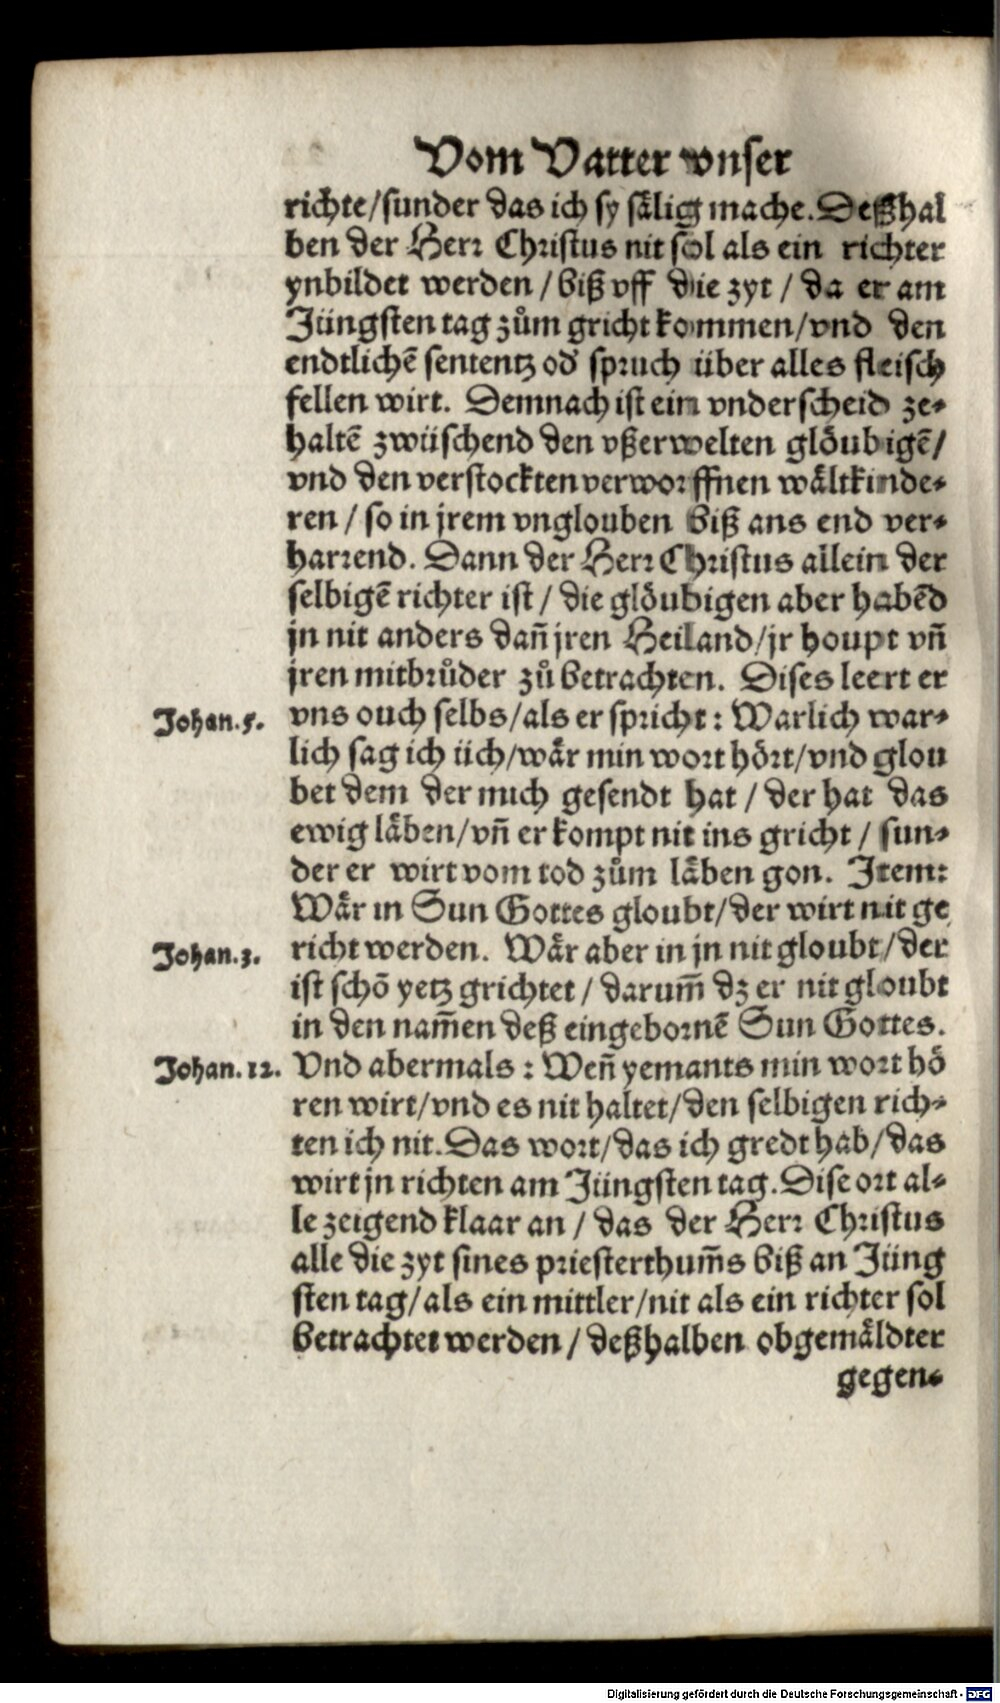 Vom Vatter vnser
richte/sunder das ich sy sälig mache. Deßhal
ben der Herr Christus nit sol als ein richter
ynbildet werden / biß vff die zyt / da er am
Jüngsten tag zům gricht kommen/vnd den
endtlichē sententz od' spruch über alles fleisch
fellen wirt. Demnach ist ein vnderscheid ze-
haltē zwüschend den vßerwelten glöubigē/
vnd den verstockten verworffnen wältkinde-
ren / so in jrem vnglouben biß ans end ver-
harrend. Dann der Herr Christus allein der
selbigē richter ist / die glöubigen aber habēd
jn nit anders dañ jren Heiland/jr houpt vñ
jren mitbrůder zů betrachten. Dises leert er
Johan.5. vns ouch selbs/als er spricht: Warlich war-
lich sag ich üch/wär min wort hört/vnd glou
bet dem der mich gesendt hat / der hat das
ewig läben/vñ er kompt nit ins gricht / sun-
der er wirt vom tod zům läben gon. Item:
Wär in Sun Gottes gloubt/der wirt nit ge
Johan.3. richt werden. Wär aber in jn nit gloubt/der
ist schō yetz grichtet / darum̄ dz er nit gloubt
in den nam̄en deß eingebornē Sun Gottes.
Johan.12. Vnd abermals : Weñ yemants min wort hö
ren wirt/vnd es nit haltet/den selbigen rich-
ten ich nit. Das wort/das ich gredt hab/das
wirt jn richten am Jüngsten tag. Dise ort al-
le zeigend klaar an / das der Herr Christus
alle die zyt sines priesterthum̄s biß an Jüng
sten tag/als ein mittler/nit als ein richter sol
betrachtet werden / deßhalben obgemäldter
gegen-
Digitalisierung gefördert durch die Deutsche Forschungsgemeinschaft - DFG